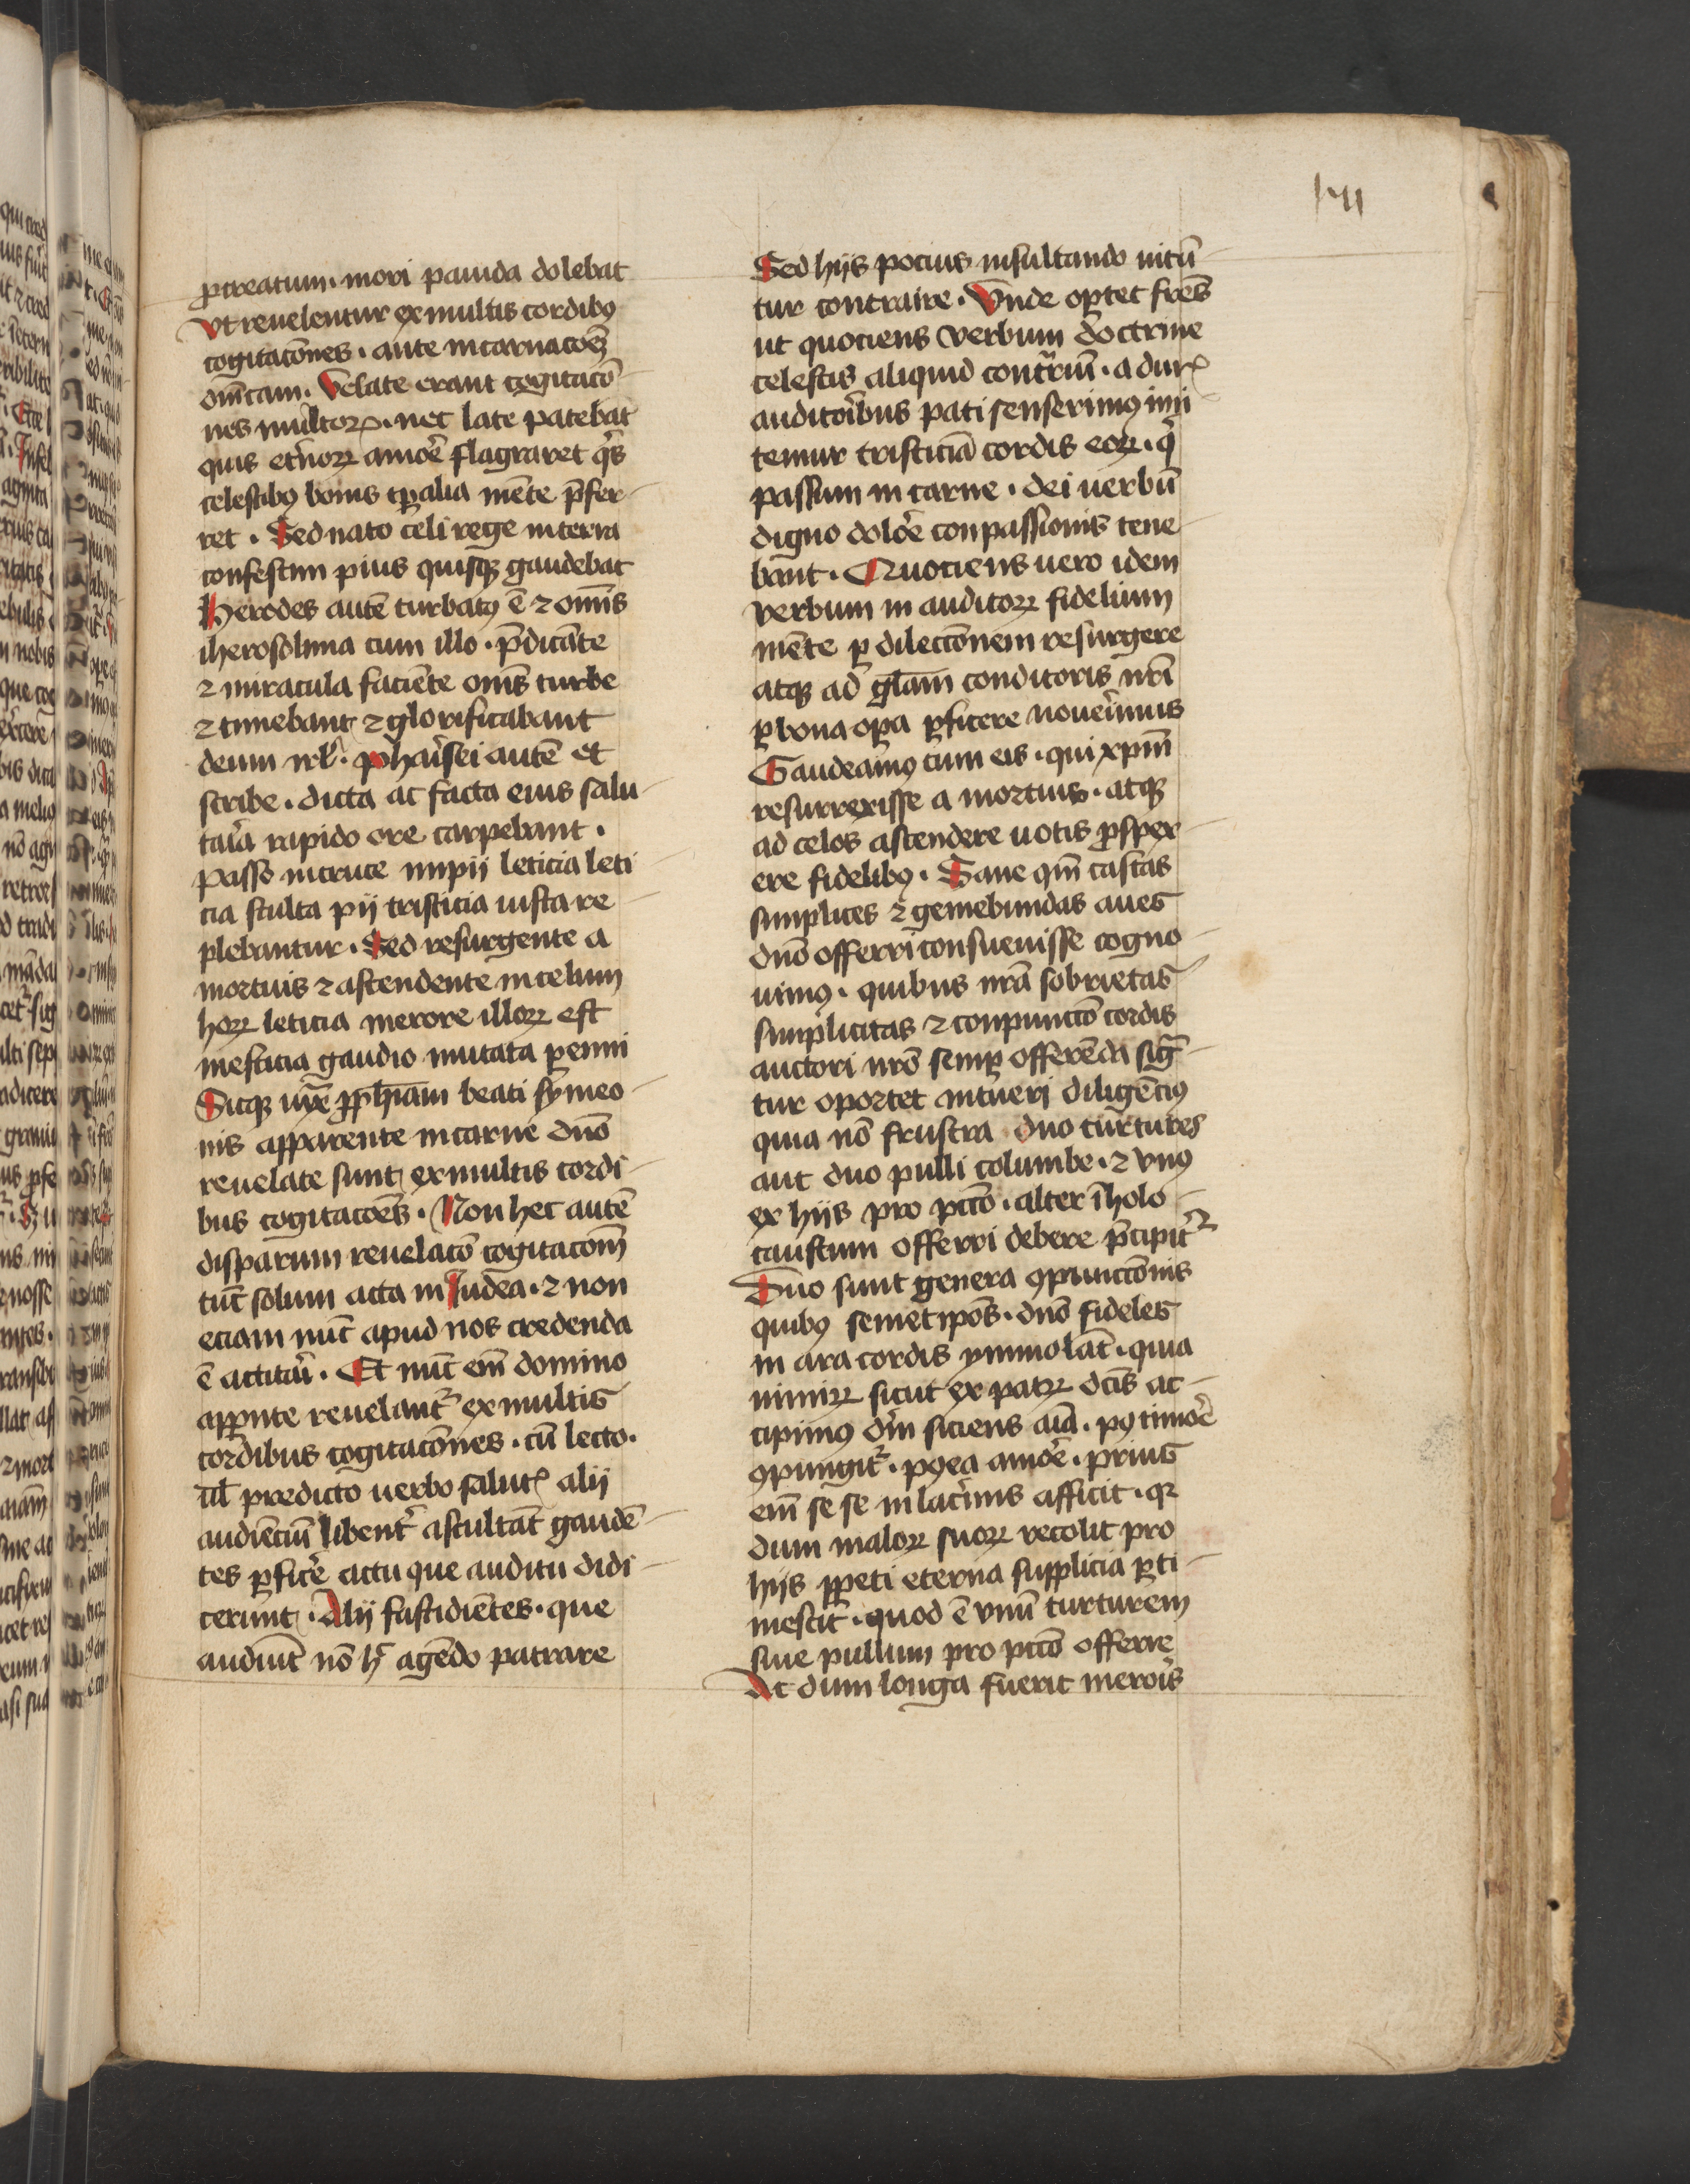 ꝓcreatum · mori pauida dolebat
Vt reuelentur ex multis cordibꝯ
cogitacōnes · ante incarnacōeꝫ
dn̄icam · Velate erant cogitacō
nes multoꝝ · nec late patebat
quis et̾noꝝ amōre flagraret qͥs
celestibꝯ bonis tp̄alia mēte p̄fer
ret · Sed nato celi rege in terra
confestim pius quisqꝫ gaudebat
Herodes autē turbatꝯ ē ⁊ om̄is
iherosolima cum illo · p̄dicāte
⁊ miracula faciēte om̄s turbe
⁊ timebant ⁊ glorificabant
deum isrl̄ · phaͥsei autē et
scribe · dicta ac facta eius salu
taͥa rapido ore carpebant ·
Passo in cruce impij leticia leti
cia stulta pij tristicia iusta re
plebantur · Sed resurgente a
mortuis ⁊ ascendente in celum
hoꝝ leticia merore illoꝝ est
mesticia gaudio mutata ꝑenni
Sicqꝫ iuxᵃ ꝓph̄iam beati symeo
nis apparente in carne dn̄o
reuelate sunt ex multis cordi
bus cogitacōes · Non hec autē
disparum reuelacō cogitacōm̄
tūc solum acta in Iudea · ⁊ non
eciam nūc apud nos credenda
ē actitaͥ · Et nūc em̄ domino
appͣente reuelant᷑ ex multis
cordibus cogitacōnes · cū lecto ·
ul̄ predicto uerbo salutꝭ alij
audiēciū libent᷑ ascultāt gaudē
tes ꝑficē actu que auditu didi
cerunt · Alij fastidiētes · que
audiūt nō h̄ agēdo patrare
141
Sed hijs pocius insultando nitū
tur contraire · Vnde oportet fres̄
ut quociens verbum doctrine
celestis aliquid contͣriū · a durꝭ
auditoͥbus pati senserimꝯ imi
temur tristiciā cordis eoꝝ · qͥ
passum in carne · dei uerbū
digno dolōe conpassionis tene
bant · Quociens uero idem
verbum in auditoꝝ fidelium
mēte ꝑ dilectōnem resurgere
atqꝫ ad gl̄am conditoris nr̄i
ꝑ bona oꝑa ꝑficere noueͥmus
Gaudeamꝯ cum eis · qui xpm̄
resurrexisse a mortuis · atqꝫ
ad celos ascendere uotis ꝓspex
ere fidelibꝯ · Sane qm̄ castas
simplices ⁊ gemebundas aues
dn̄o offerri consueuisse cogno
uimꝯ · quibus nr̄a sobrietas
simplicitas ⁊ conpunctō cordis
auctori nr̄o semꝑ offerēda sig̾
tur oportet intueri diligēciꝯ
quia nō frustra duo turtures
aut duo pulli columbe · ⁊ vnꝯ
ex hijs pro pctō · alter ī holo
caustum offerri debere p̄cipit᷑
Duo sunt genera ꝯpunctōnis
quibꝯ semet ipōs · dn̄o fideles
in ara cordis ymmolāt · quia
nimiꝝ sicut ex patꝝ dc̄is ac
cipimꝯ dm̄ siciens aīa · pꝯ timōe
ꝯpungit᷑ · pꝯea amōe · prius
em̄ se se in lacͥmis afficit · qꝛ
dum maloꝝ suoꝝ recolit pro
hijs ꝑpeti eterna supplicia ꝑti
mescit · quod ē vnū turturem
siue pullum pro pctō offerre
At dum longa fuerit meroͥs